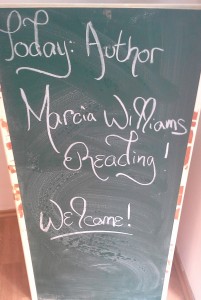 Today: Author
Marcia Williams
Reading!
Welcome!